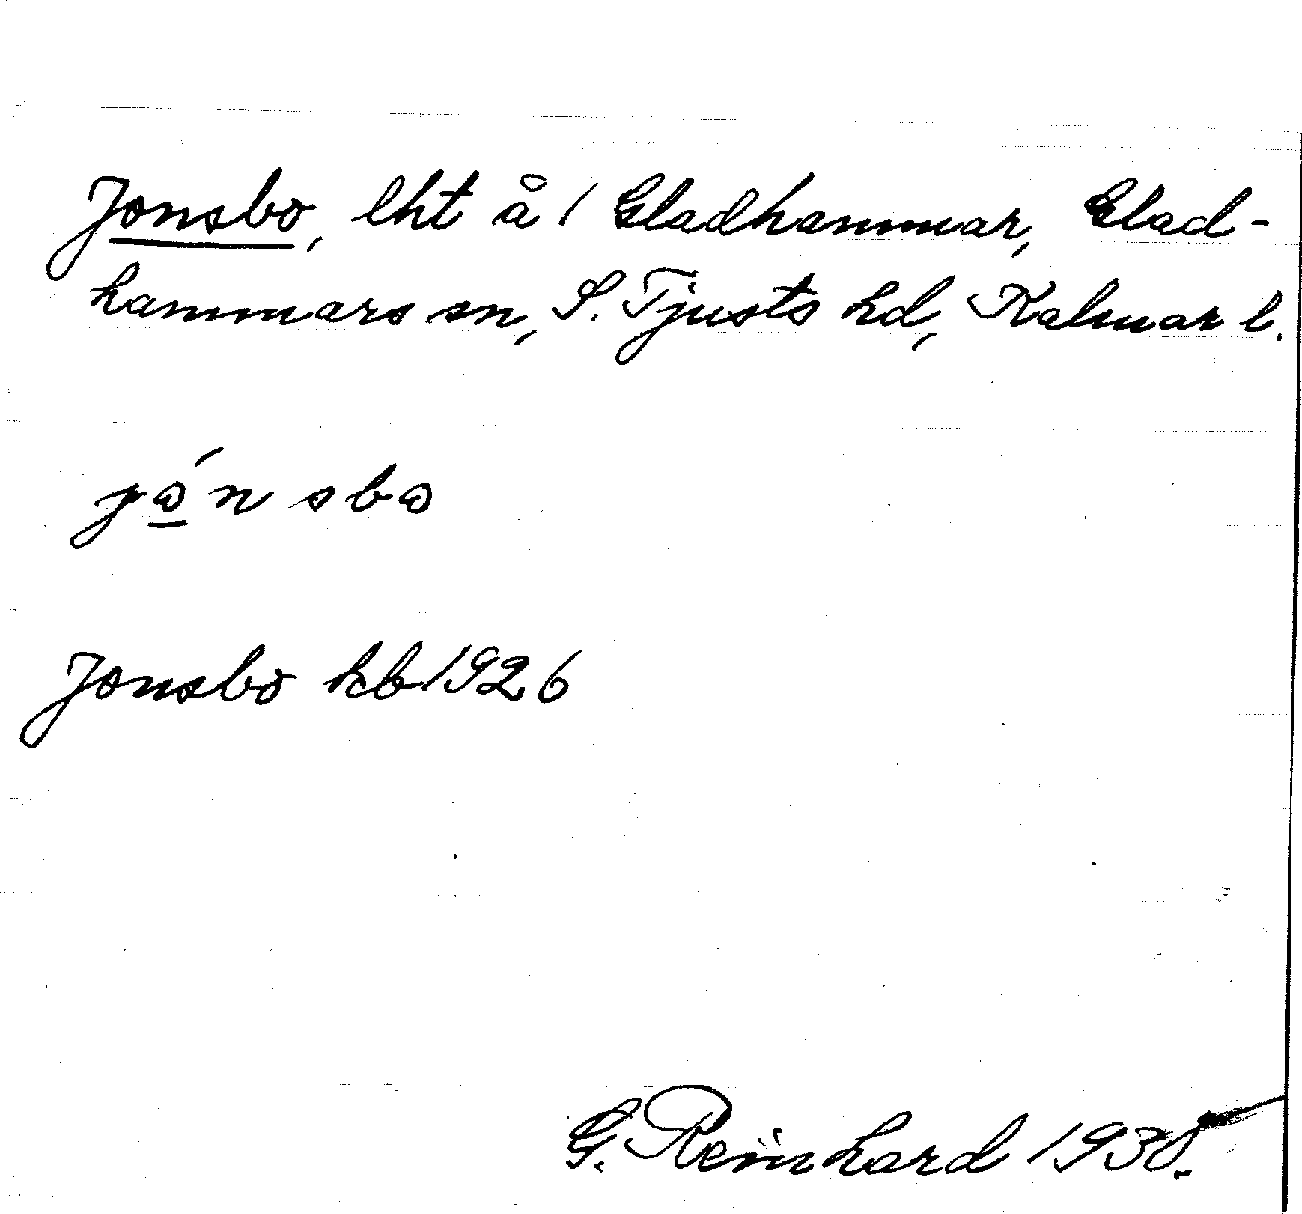 Jonsbo, lht å 1 Gladhammar, Glad-
hammars sn, S. Tjusts hd, Kalmar l.
jǫ́nsbo
Jonsbo kb 1926
G. Reinhard 1938.